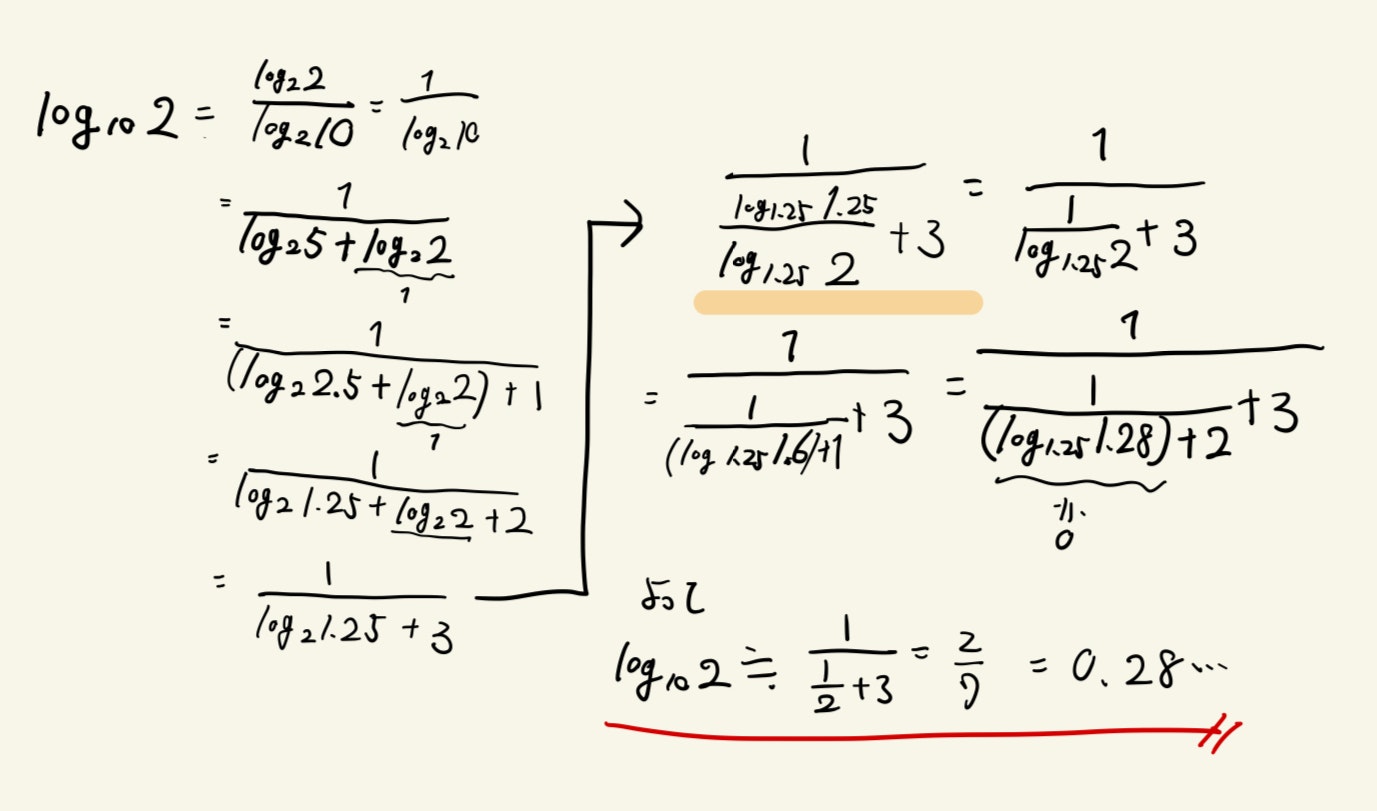 log₁₀2 = (log₂2)/(log₂10) = 1/(log₂10)
= 1/(log₂5 + log₂2)
1
= 1/((log₂2.5 + log₂2) + 1)
1
= 1/(log₂1.25 + log₂2 + 2)
= 1/(log₂1.25 + 3)
1/((log₁.₂₅1.25)/(log₁.₂₅2) + 3) = 1/(1/(log₁.₂₅2) + 3)
= 1/(1/((log₁.₂₅1.6)+1) + 3) = 1/(1/((log₁.₂₅1.28)+2) + 3)
≒
0
よって
log₁₀2 ≒ 1/(1/2 + 3) = 2/7 = 0.28…